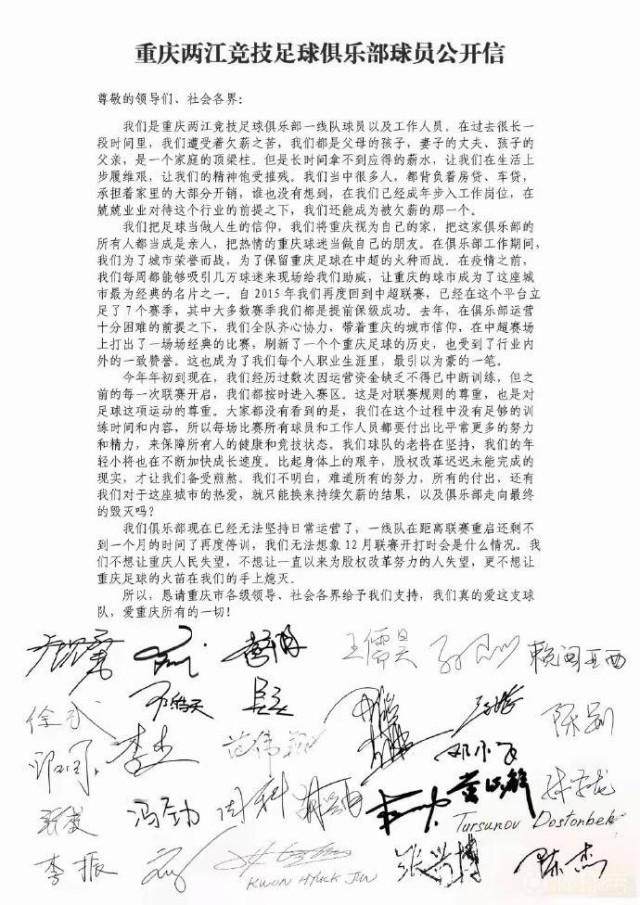 重庆两江竞技足球俱乐部球员公开信
尊敬的领导们、社会各界：
我们是重庆两江竞技足球俱乐部一线队球员以及工作人员。在过去很长一
段时间里，我们遭受着欠薪之苦，我们都是父母的孩子，妻子的丈夫、孩子的
父亲，是一个家庭的顶梁柱。但是长时间拿不到应得的薪水，让我们在生活上
步履维艰，让我们的精神饱受摧残。我们当中很多人，都背负着房贷、车贷，
承担着家里的大部分开销，谁也没有想到，在我们已经成年步入工作岗位，在
兢兢业业对待这个行业的前提之下，我们还能成为被欠薪的那一个。
我们把足球当做人生的信仰，我们将重庆视为自己的家，把这家俱乐部的
所有人都当成是亲人，把热情的重庆球迷当做自己的朋友。在俱乐部工作期间，
我们为了城市荣誉而战，为了保留重庆足球在中超的火种而战。在疫情之前，
我们每周都能够吸引几万球迷来现场给我们助威，让重庆的球市成为了这座城
市最为经典的名片之一。自 2015 年我们再度回到中超联赛，已经在这个平台立
足了 7 个赛季，其中大多数赛季我们都是提前保级成功。去年，在俱乐部运营
十分困难的前提之下，我们全队齐心协力，带着重庆的城市信仰，在中超赛场
上打出了一场场经典的比赛，刷新了一个个重庆足球的历史，也受到了行业内
外的一致赞誉。这也成为了我们每个人职业生涯里，最引以为豪的一笔。
今年年初到现在，我们经历过数次因运营资金缺乏不得已中断训练，但之
前的每一次联赛开启，我们都按时进入赛区。这是对联赛规则的尊重，也是对
足球这项运动的尊重。大家都没有看到的是，我们在这个过程中没有足够的训
练时间和内容，所以每场比赛所有球员和工作人员都要付出比平常更多的努力
和精力，来保障所有人的健康和竞技状态。我们球队的老将在坚持，我们的年
轻小将也在不断加快成长速度。比起身体上的艰辛，股权改革迟迟未能完成的
现实，才让我们备受煎熬。我们不明白，难道所有的努力，所有的付出，还有
我们对于这座城市的热爱，就只能换来持续欠薪的结果，以及俱乐部走向最终
的毁灭吗？
我们俱乐部现在已经无法坚持日常运营了，一线队在距离联赛重启还剩不
到一个月的时间了再度停训，我们无法想象 12 月联赛开打时会是什么情况。我
们不想让重庆人民失望，不想让一直以来为股权改革努力的人失望，更不想让
重庆足球的火苗在我们的手上熄灭。
所以，恳请重庆市各级领导、社会各界给予我们支持，我们真的爱这支球
队，爱重庆所有的一切！
王儒昊
邓小飞
冯劲 周科 黄政毅
Tursunov Dostonbek
李振 KWON HYUCK JIN 张兴博 陈杰